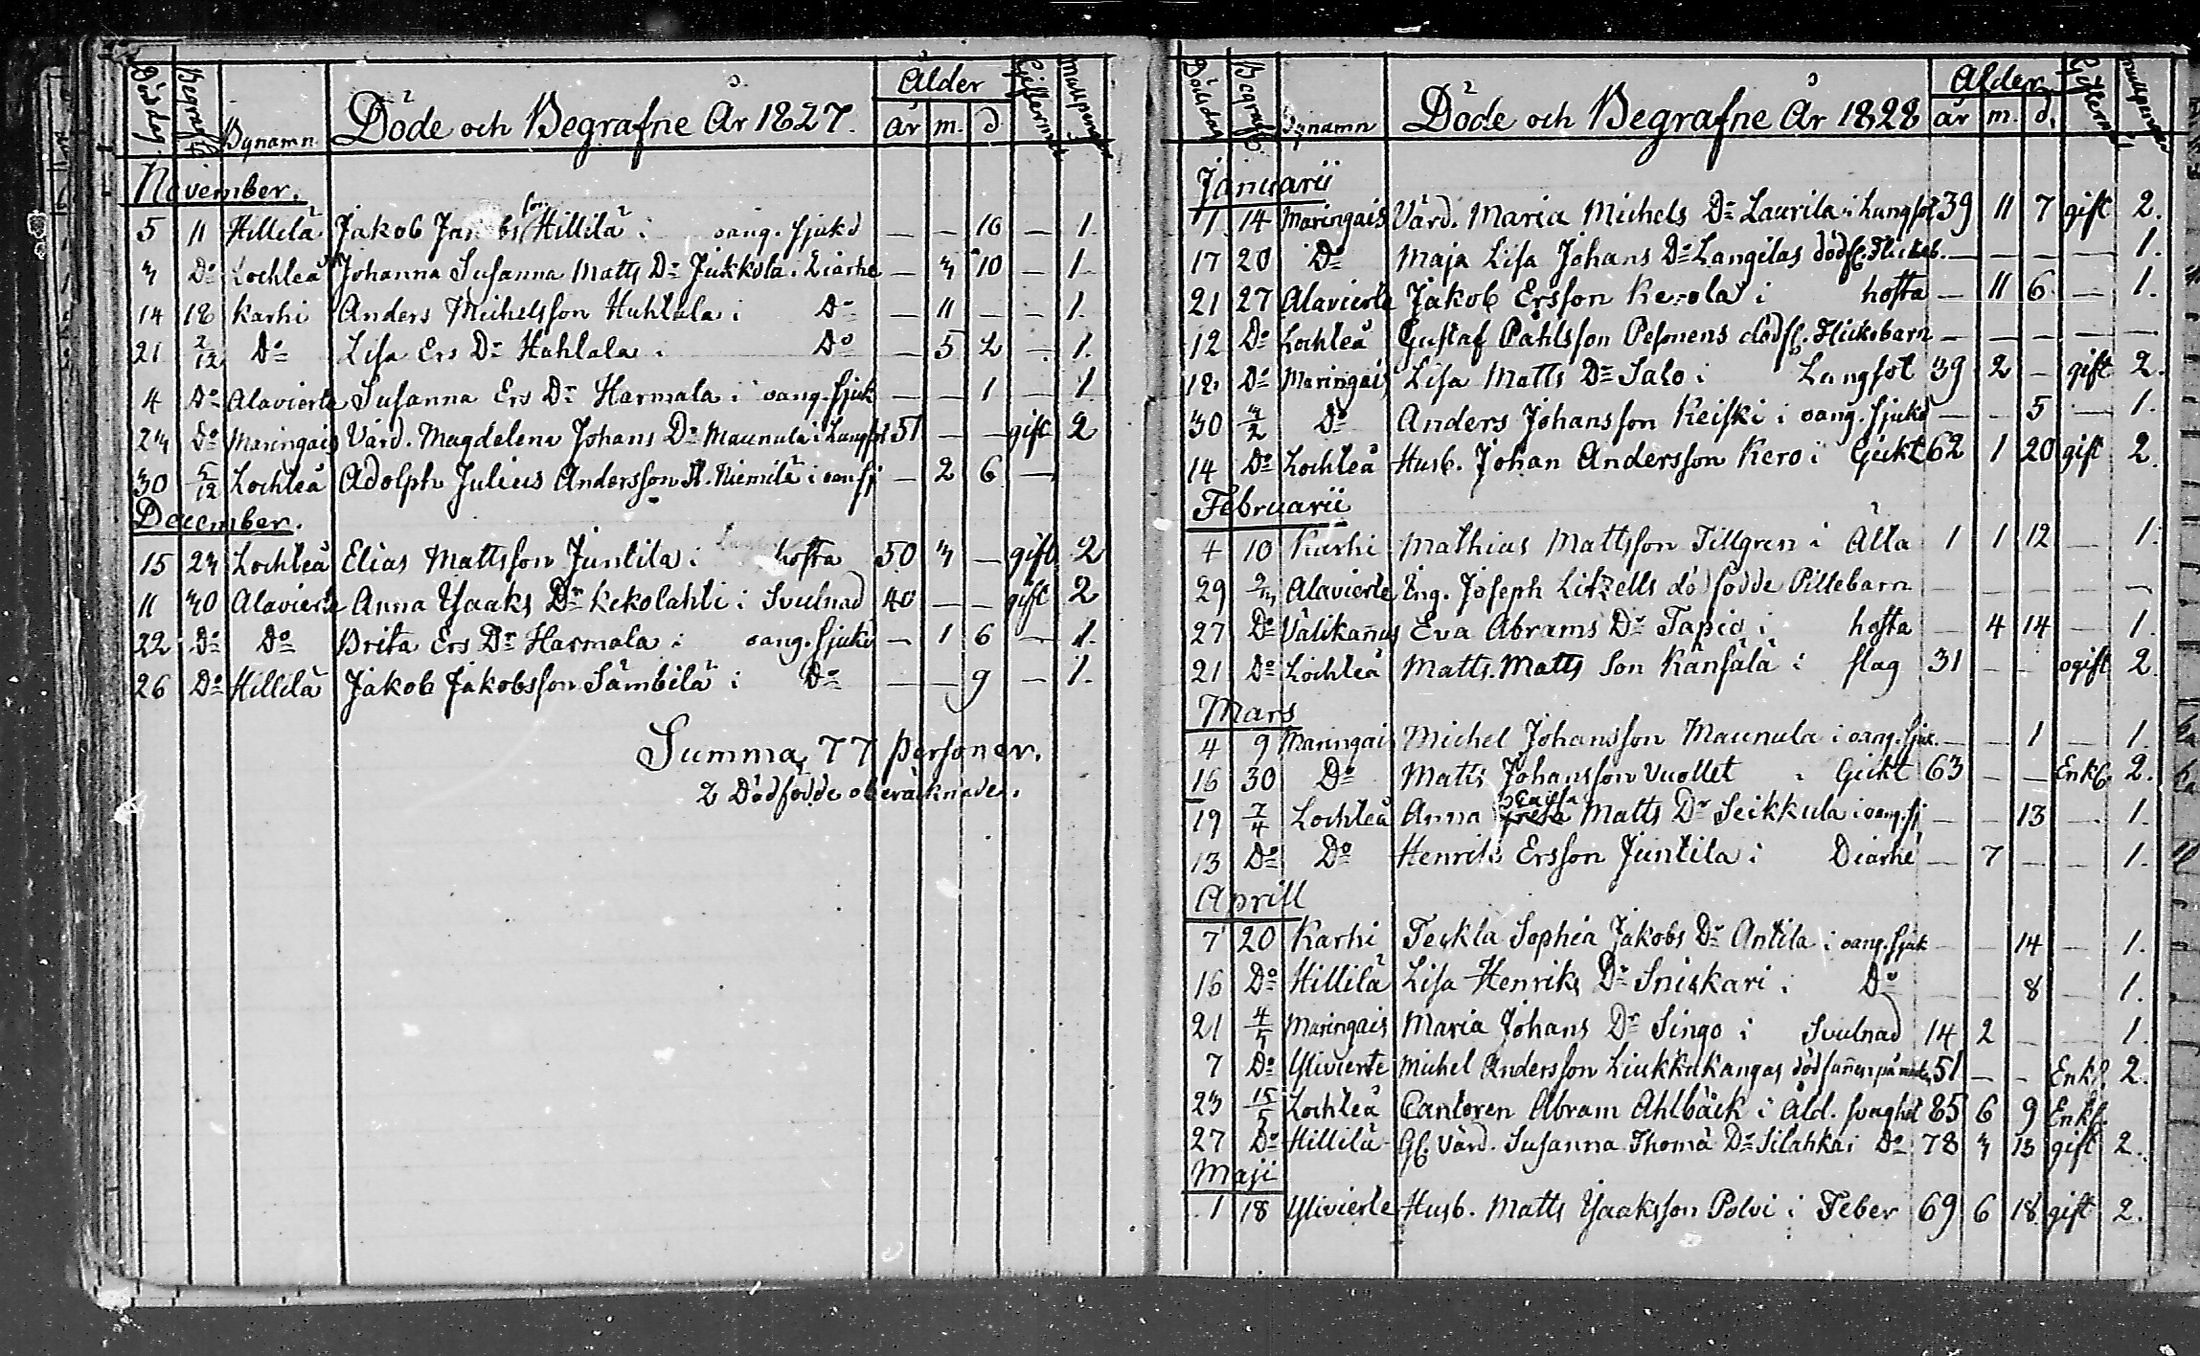 Dödsdag Begrafn Bynamn Döde och Begrafne År 1827. Ålder år m. d
November.
5 11 Hillilä Jakob Jakobsson Hillilä i oang. sjukd — — 16 — 1.
3 Do Lochteå Johanna Susanna Matts Dr Jukkola i Diarhe — 3 10 — 1.
14 18 Karhi Anders Michelsson Huhtala i Do — 11 — — 1.
21 2/12 Do Lisa Ers Dr Huhtala i Do — 5 2 — 1.
4 Do Alavierte Susanna Ers Dr Harmala i oang. sjuk — — 1 — 1
23 Do Maringais Värd. Magdelena Johans Dr Maunula i Lungsot 51 — — gift 2
30 5/12 Lochteå Adolph Julius Andersson Niemilä i oan sj — 2 6 —
December.
15 23 Lochteå Elias Mattsson Juntila i hosta 50 3 — gift 2
11 30 Alavierte Anna Ysaaks Dr Kekolahti i Svulnad 40 — — gift 2
22 Do Do Brita Ers Dr Harmala i oang. sjukd — 1 6 — 1.
26 Do Hillilä Jakob Jakobsson Sämbilä i Do — — 9 — 1.
Summa, 77 personer.
2 Dödfödde oberäcknade.
Dödsdag Begrafn Bynamn Döde och Begrafne År 1828 Ålder år m. d.
Januarii
1 14 Maringais Värd. Maria Michels Dr Laurila i lungsot 39 11 7 gift 2.
17 20 Do Maja Lisa Johans Dr Langilas dödf. Flickeb. — — — — 1.
21 27 Alavierte Jakob Ersson Kerola i hosta — 11 6 — 1.
12 Do Lochteå Gustaf Påhlsson Pesonens dödf. Flickebarn — — — — —
18 Do Maringais Lisa Matts Dr Salo i Lungsot 39 2 — gift 2.
30 3/2 Do Anders Johansson Keiski i oang. sjukd — — 5 — 1.
14 Do Lochteå Husb. Johan Andersson Kero i Gickt 62 1 20 gift 2.
Februarii
4 10 Karhi Mathias Mattsson Tillgren i Älta 1 1 12 — 1.
29 2/3 Alavierte Eng. Joseph Litzells dödfödde Piltebarn — — — — —
27 Do Välikañus Eva Abrams Dr Tapio i hosta — 4 14 — 1.
21 Do Lochteå Matts Matts Son Känsälä i slag 31 — — ogift 2.
Mars
4 9 Maringais Michel Johansson Maunula i oang. sjuk. — — 1 — 1.
16 30 Do Matts Johansson Vuollet i Gickt 63 — — Enkl. 2.
19 7/4 Lochteå Anna Matts Dr Seikkula i oang. sj — — 13 — 1.
13 Do Do Henrik Ersson Juntila i Diarhe — 7 — — 1.
Aprill
7 20 Karhi Teckla Sophia Jakobs Dr Antila i oang. sjuk — — 14 — 1.
16 Do Hillilä Lisa Henriks Dr Sniskari i Do — — 8 — 1.
21 4/5 Maringais Maria Johans Dr Singo i Svulnad 14 2 — — 1.
7 Do Ylivierte Michel Andersson Liukkokangas död fañen på 51 — — Enkl. 2.
23 15/5 Lochteå Cantoren Abram Ahlbäck i Åld. svaghet 85 6 9 Enkl.
27 Do Hillilä Gl. Värd. Susanna Thoma Dr Silahka i Do 78 3 13 gift 2.
Maji
1 18 Ylivierte Husb. Matts Ysaaksson Polvi i Feber 69 6 18 gift 2.